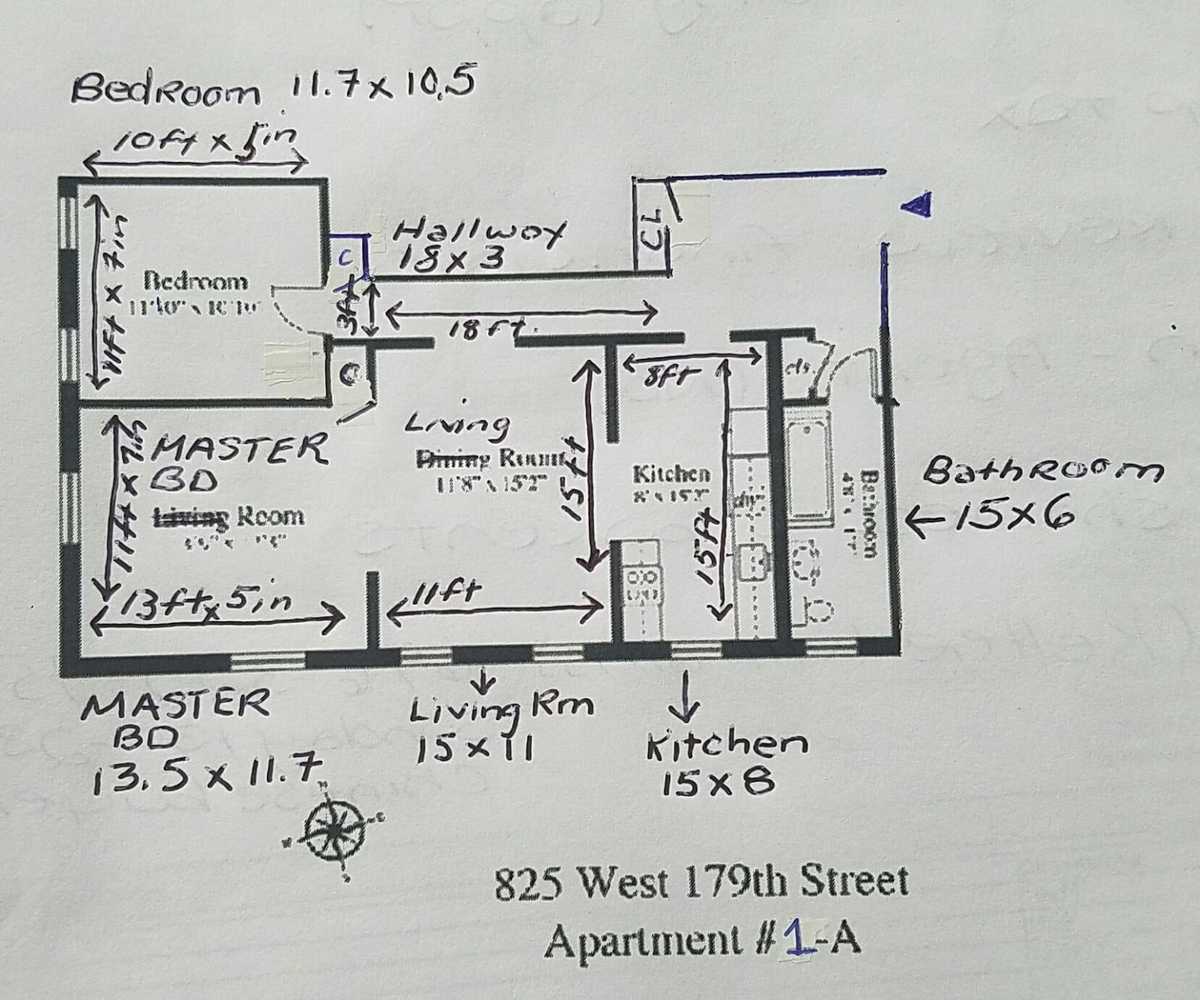 Bedroom 11.7 x 10.5
10ft x 5in
11ft x 7in
Bedroom
C
Hallway
18 x 3
CL
3ft
18 ft.
C
8ft
cls
MASTER
BD
Living Room
11ft x 7in
13ft x 5in
Living
Dining Room
11'8" x 15'2"
15ft
11ft
Kitchen
8' x 15'2"
15ft
dw
Bathroom
Bathroom
15x6
MASTER
BD
13.5 x 11.7
Living Rm
15 x 11
Kitchen
15 x 8
825 West 179th Street
Apartment #1-A